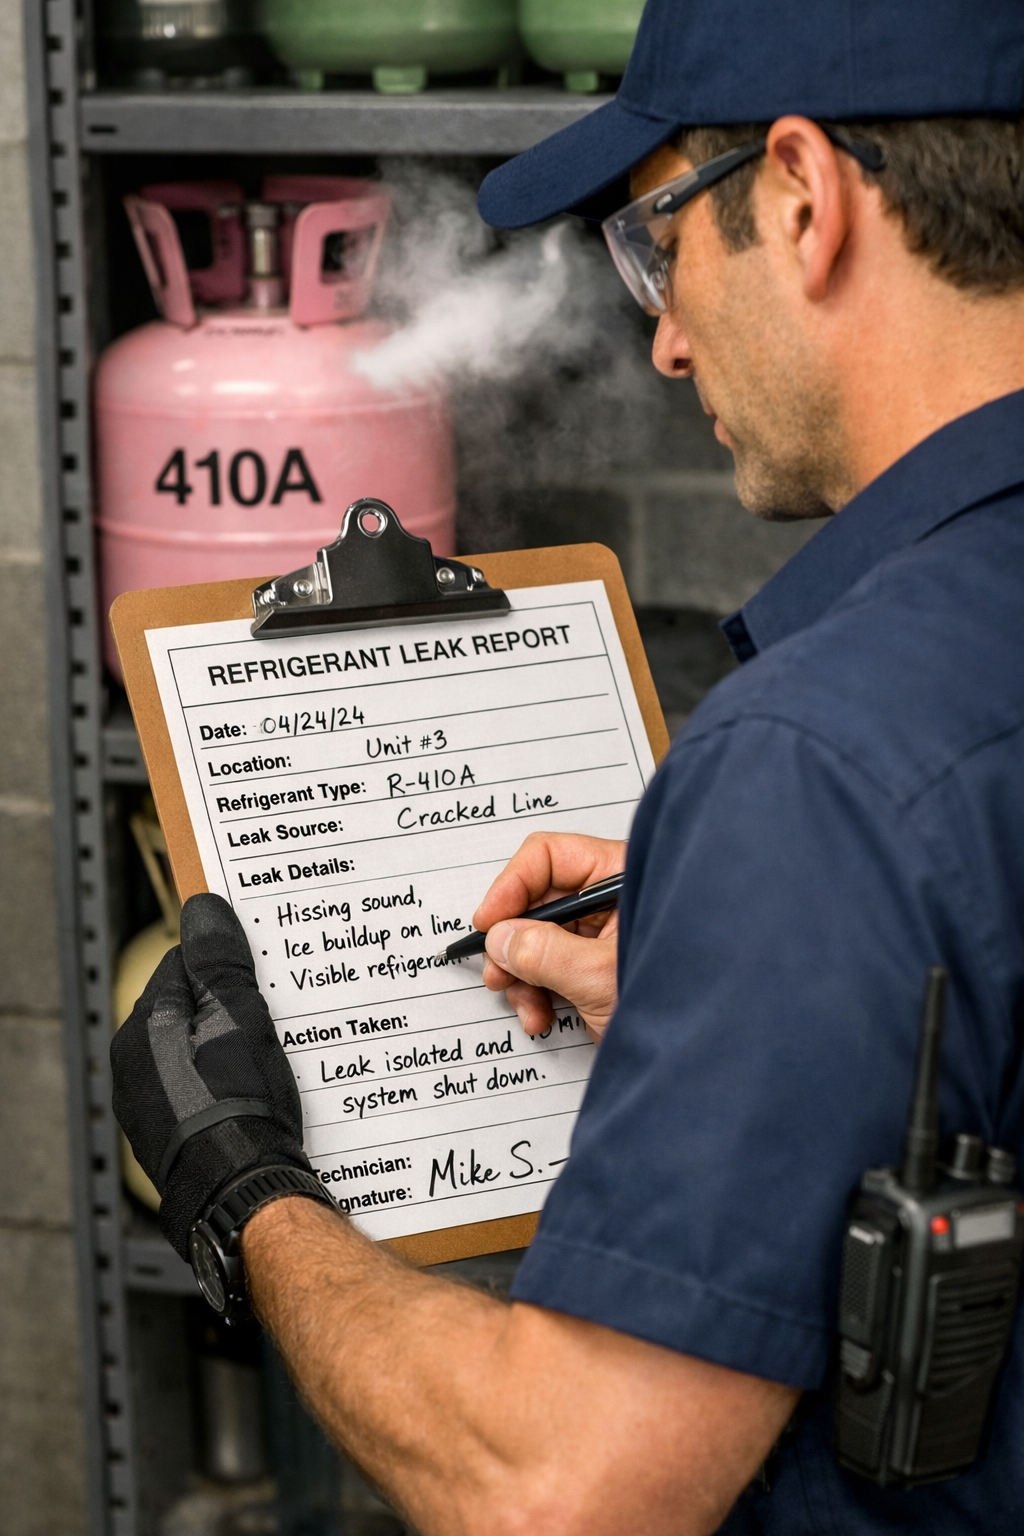 410A
REFRIGERANT LEAK REPORT
Date: 04/24/24
Location: Unit #3
Refrigerant Type: R-410A
Leak Source: Cracked Line
Leak Details:
• Hissing sound,
• Ice buildup on line,
• Visible refrigerant
Action Taken:
Leak isolated and
system shut down.
Technician: Mike S.
Signature: